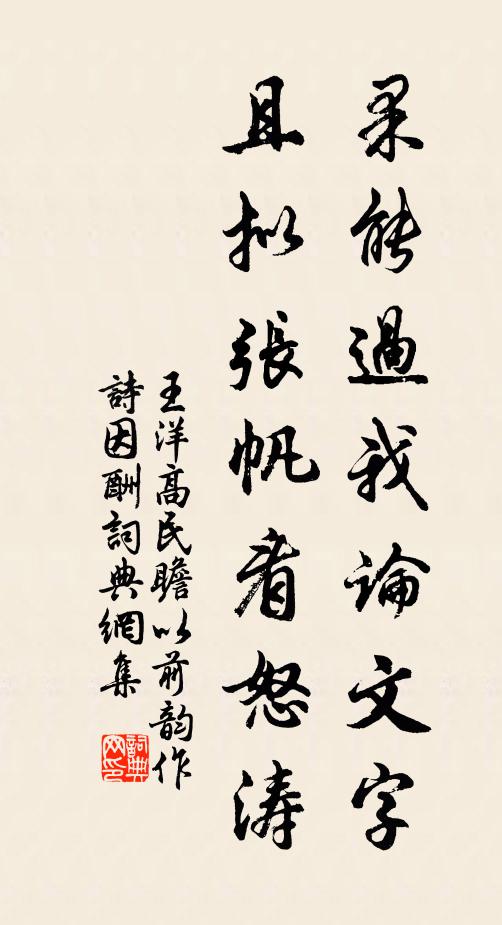 果能過我論文字
且拟張帆看怒涛
王洋高民瞻以前韵作
詩因酬詞典網集
詞典网印